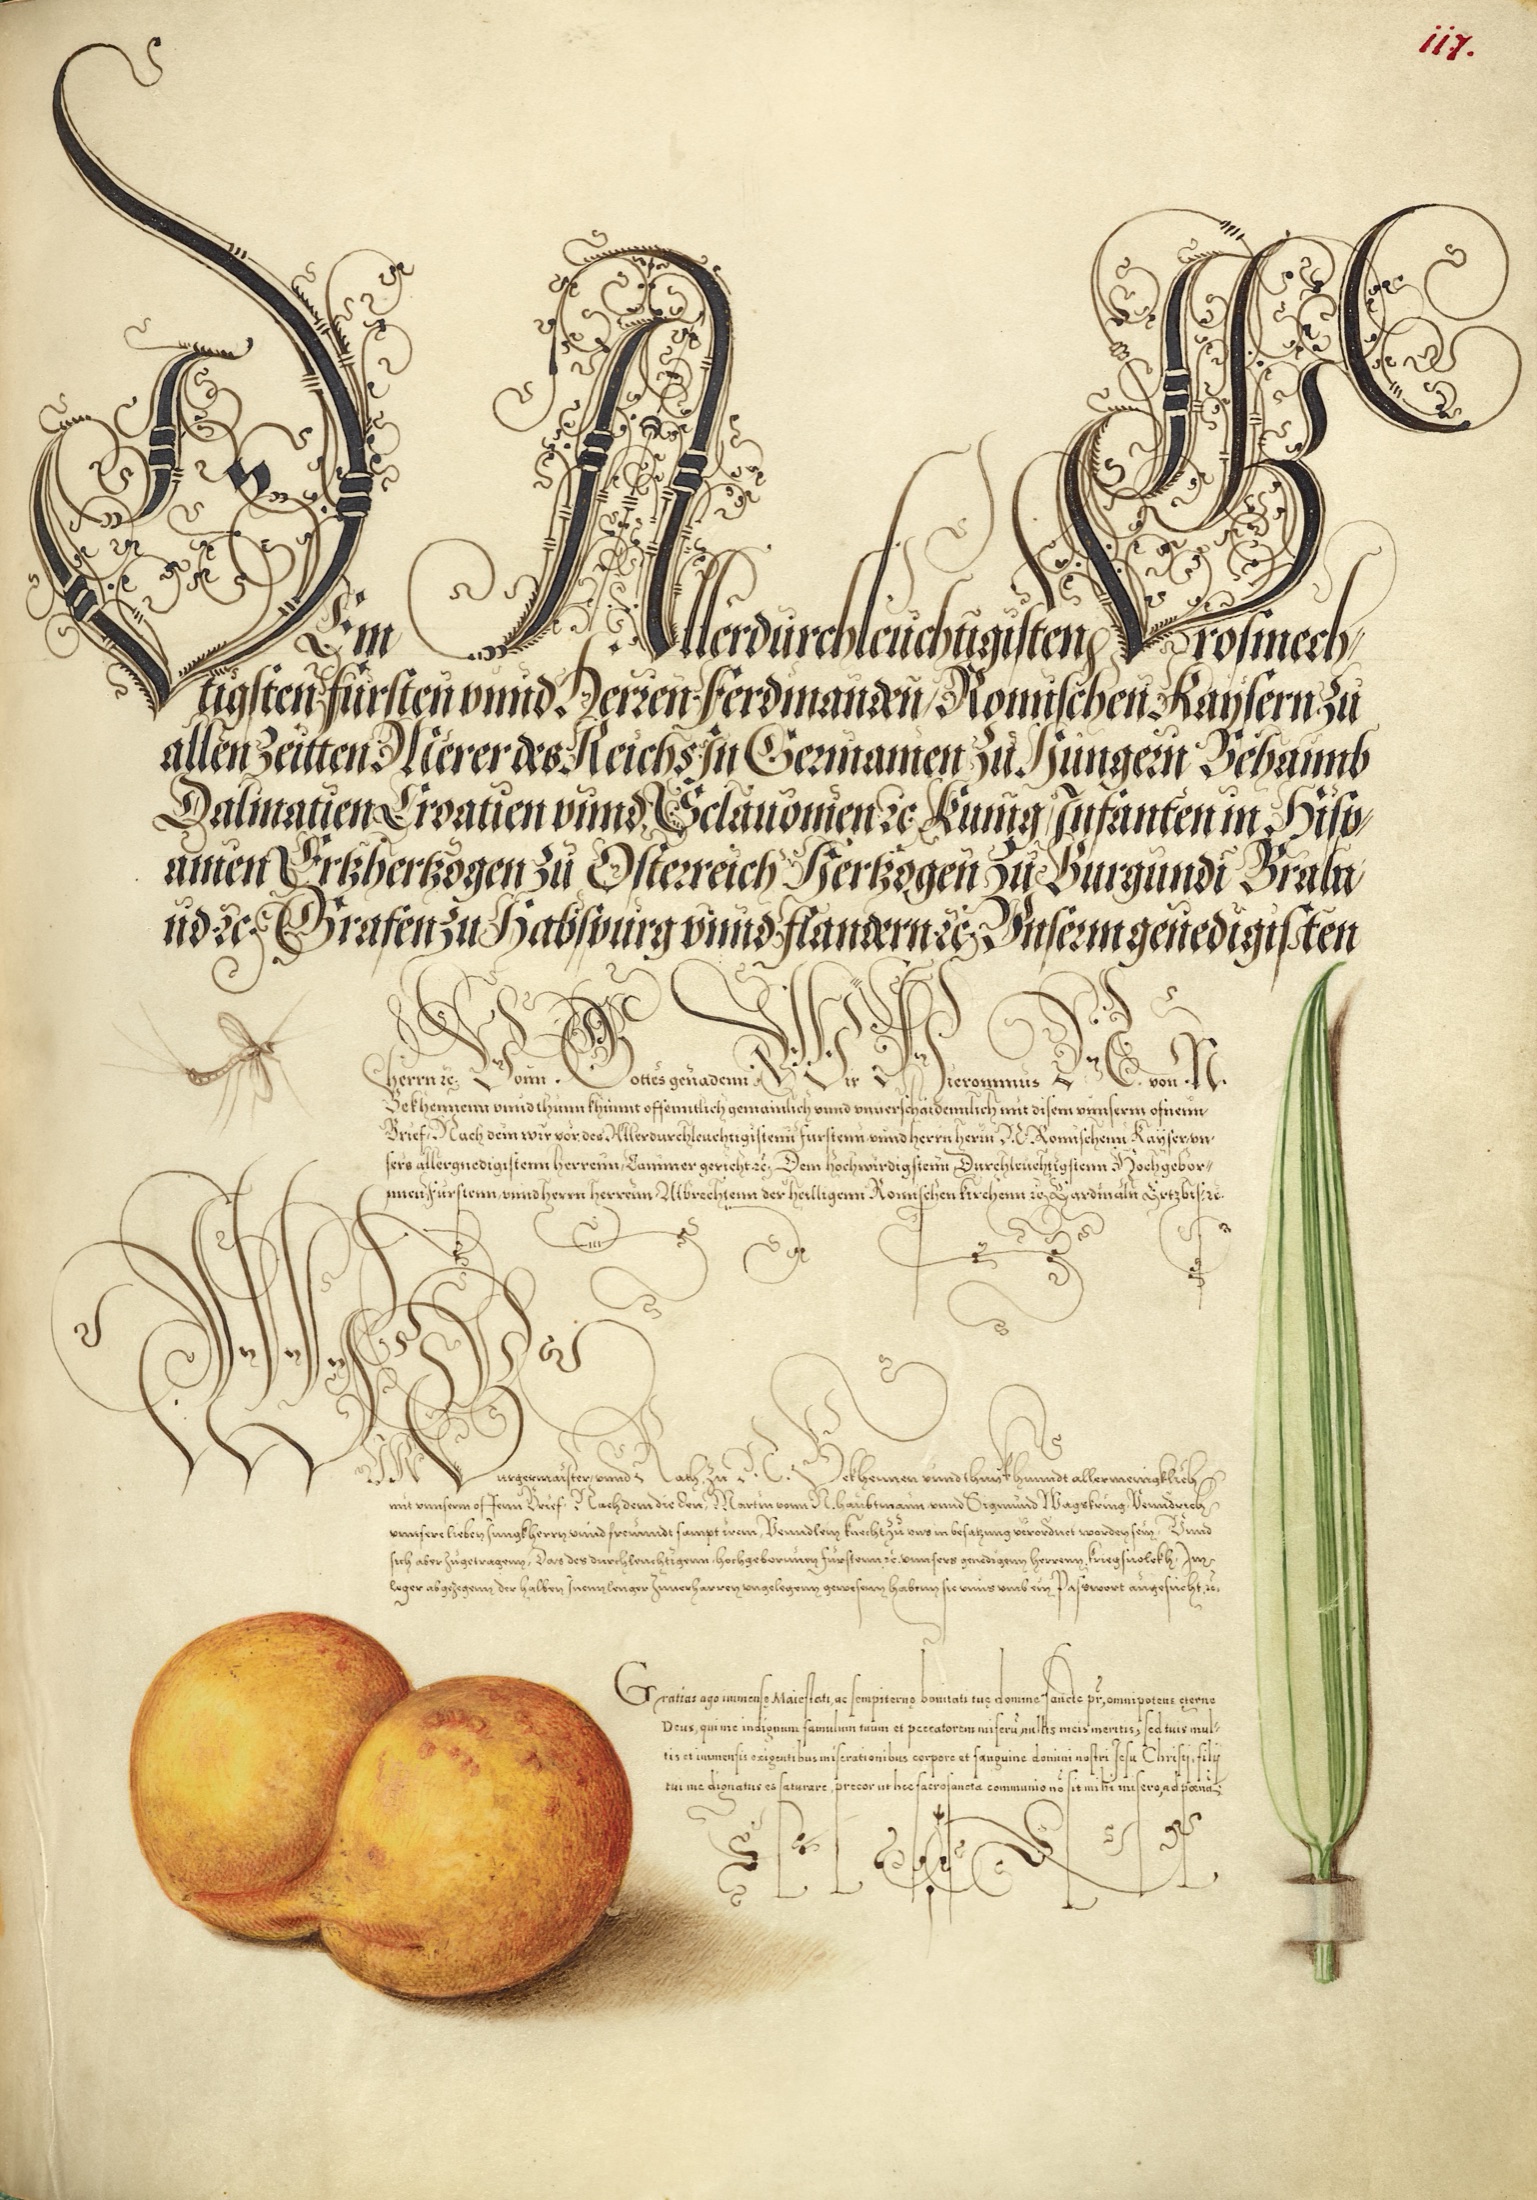 117.
Dem Allerdurchleuchtigisten Grosmech-
tigsten fursten vnnd Herren Ferdinanden Romischen Kaysern zu
allen zeitten Merer des Reichs In Germanien zu Hungern Behaimb
Dalmatien Croatien vnnd Sclauonien ꝛc Kunig Infanten in Hisp-
anien Ertzhertzogen zu Osterreich Hertzogen zu Burgundi Braba-
nd ꝛc Grafen zu Habspurg vnnd Flandern ꝛc Vnserm genedigisten
Herrn ꝛc Vonn Gottes genadenn Wir Hieronimus D. E. von N.
Bekhennenn vnnd thunn khunnt offenntlich gemainlich vnnd vnuerschaidennlich mit disem vnnserm ofnenn
Brief, Nach dem wir vor des Allerdurchleuchtigistenn furstenn vnnd herrn herrn N. Romischenn Kayser vn-
sers allergnedigistenn herrenn Cammer gericht ꝛc Dem hochwirdigistenn Durchleuchtigistenn Hochgebor-
nnen furstenn vnnd herrn herrenn Albrechtenn der heilligenn Romischen kirchenn ꝛc Cardinaln Ertzbis ꝛc
Wir Burgermaister vnnd Rath zu N. C. Bekhennen vnnd thun khunndt allermenigklich
mit vnnserm offenn Brief. Nach dem die Een, Martin vonn N. haubtmann vnnd Sigmund Wagskring Venndrich
vnnsere lieben Jungkherrn vnnd freunndt sampt irem Venndlein knecht zu vns in besatzung verordnet worden sein, Vnnd
sich aber zugetragenn, Das des durchleuchtigenn hochgebornnen furstenn ꝛc vnnsers genedigenn herrenn kriegsuolckh Im
leger abgezogenn der halben Inenn lenger Zuuerharren vngelegenn gewesenn habenn sie vnns vmb ein Paswort angesucht ꝛc
Gratias ago immensę Maiestati, ac sempiternę bonitati tuę domine sancte pr̃, omnipotens ęterne
Deus, qui me indignum famulum tuum et peccatorem miserũ nullis meis meritis, sed tuis mul-
tis et immensis exigentibus miserationibus corpore et sanguine domini nostri Jesu Christi, filij
tui me dignatus es saturare, precor ut hęc sacrosancta communio nõ sit mihi misero, ad pœnã